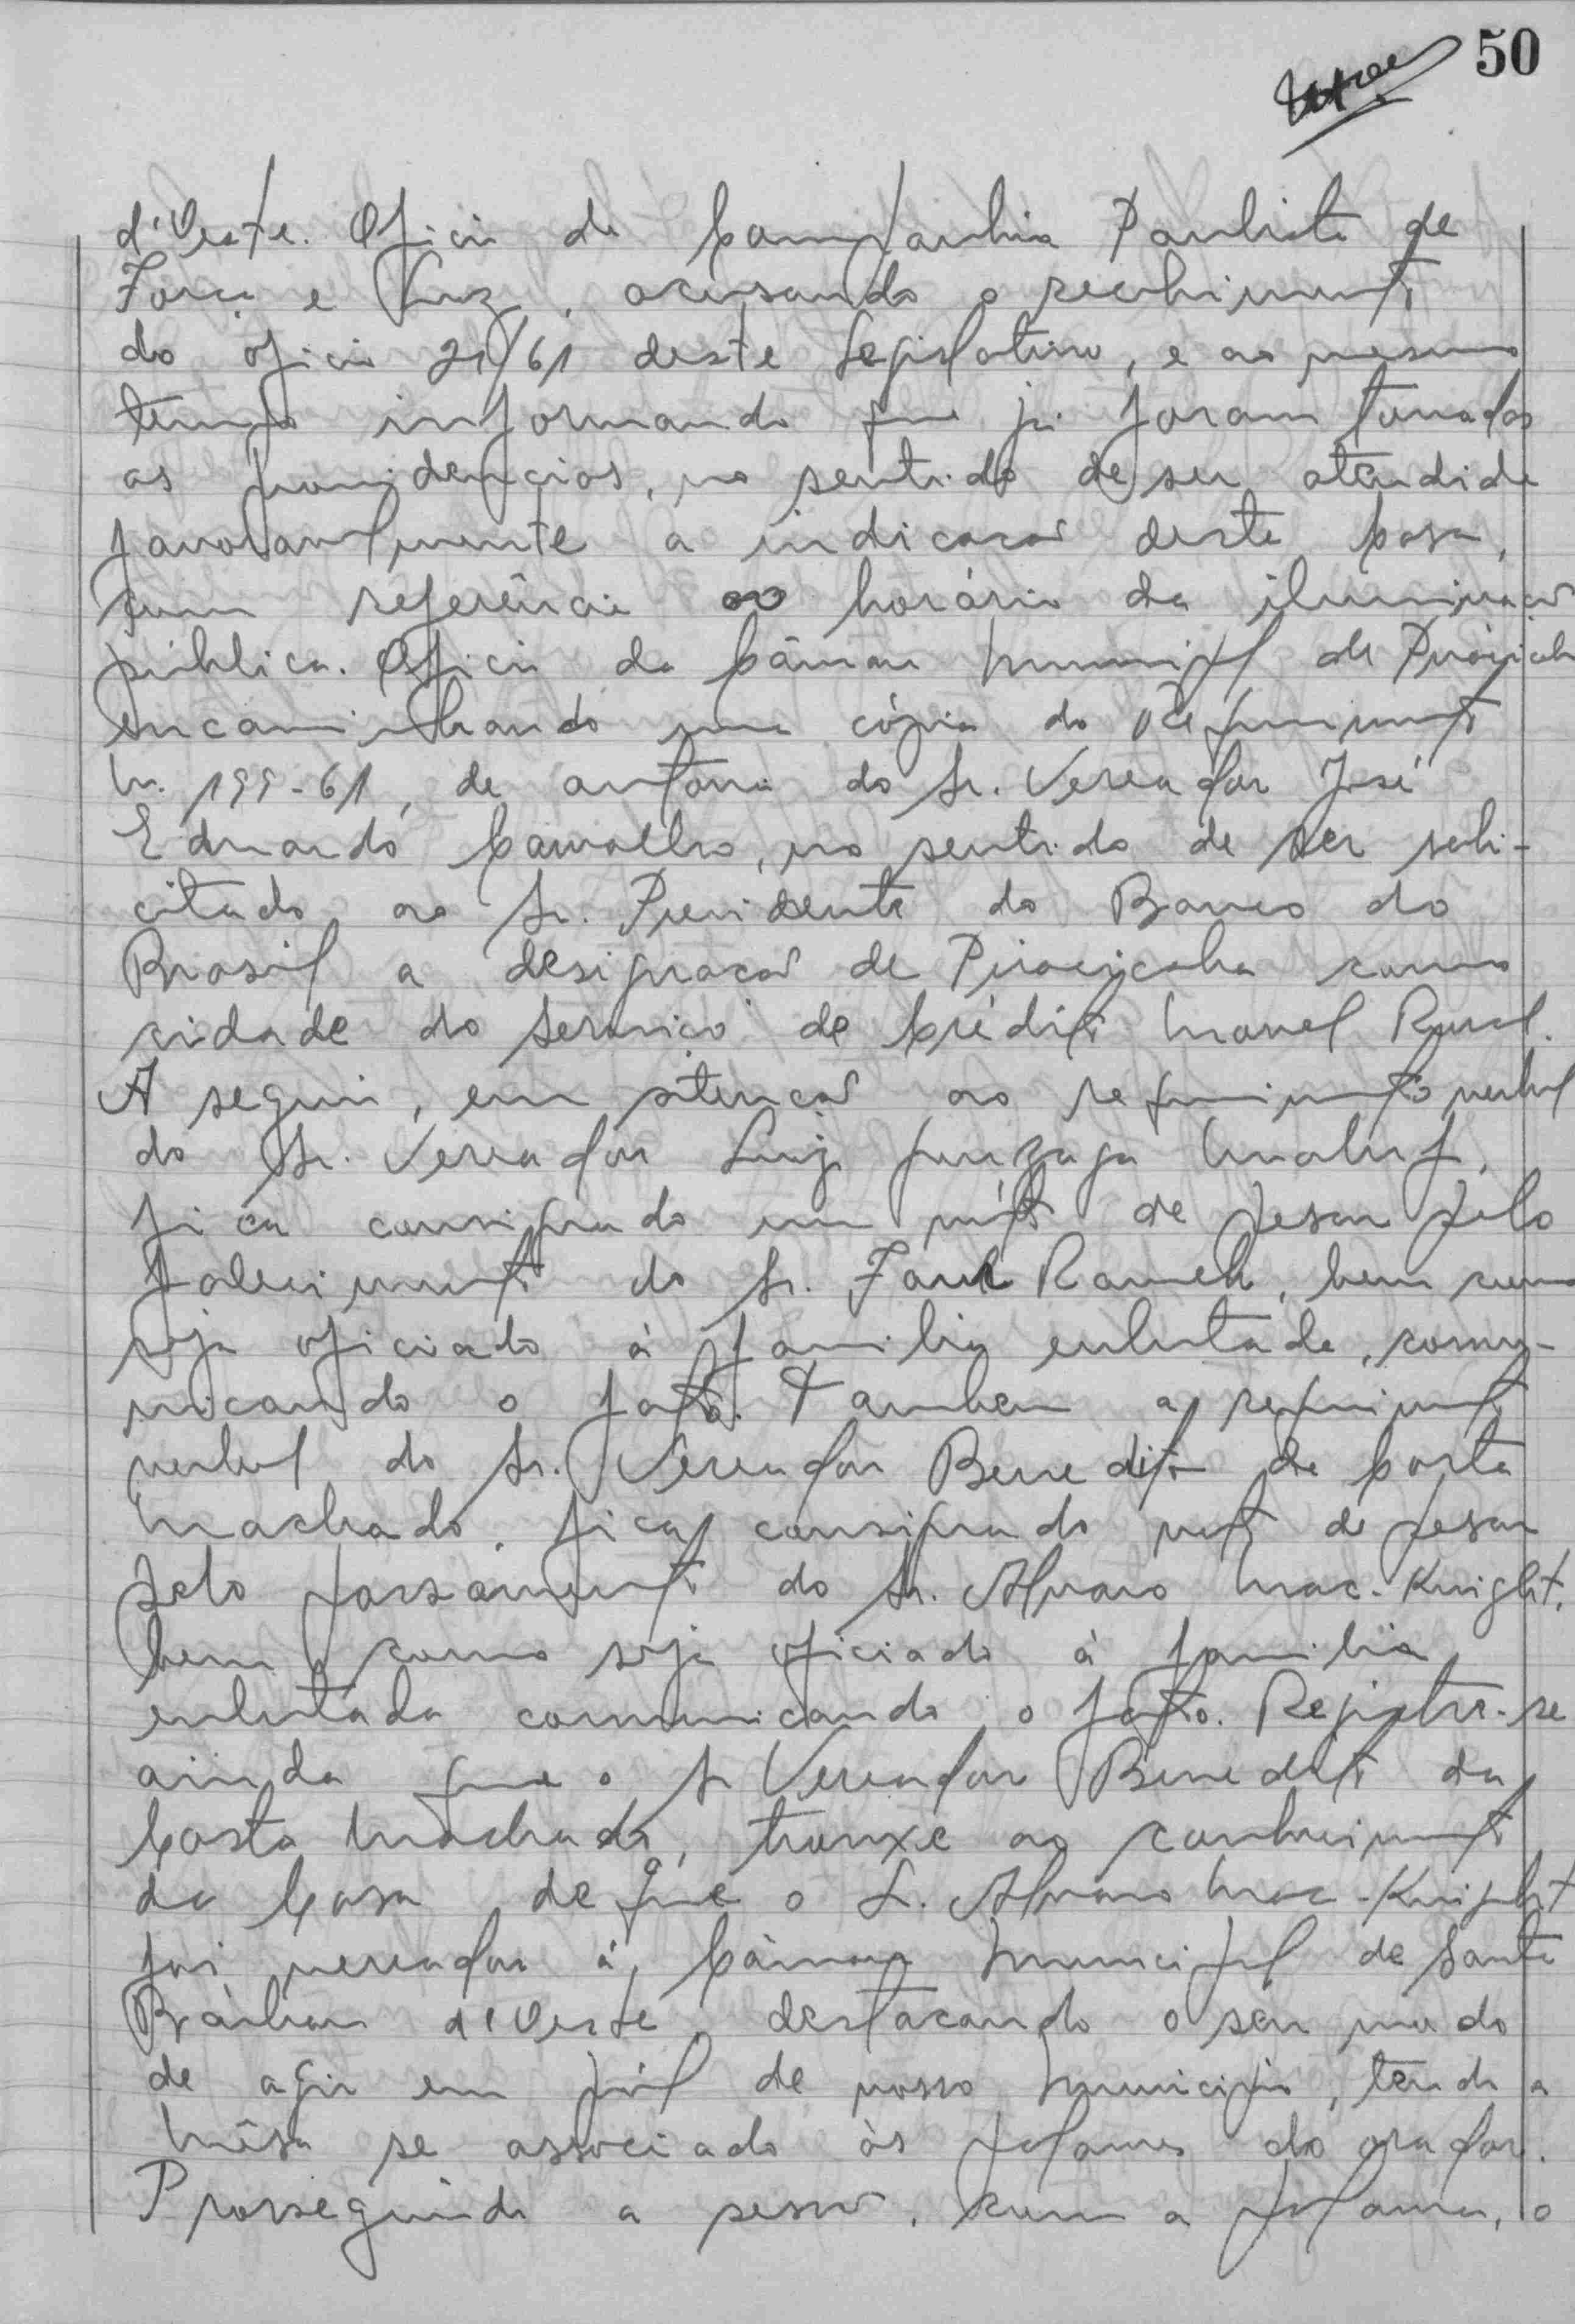 50
d'Oeste. Oficio da Companhia Paulista de
Força e Luz, acusando o recebimento
do oficio 21/61 deste Legislativo, e ao mesmo
tempo informando que já foram tomadas
as providencias, no sentido de ser atendida
favoravelmente a indicação desta Casa,
com referência ao horário da iluminação
pública. Oficio da Câmara Municipal de Piracicaba
encaminhando uma cópia do Requerimento
n. 199-61, de autoria do Sr. Vereador José
Eduardo Carvalho, no sentido de ser soli-
citado ao Sr. Presidente do Banco do
Brasil a designação de Piracicaba como
cidade do Serviço de Crédito Movel Rural.
A seguir, em atenção ao requerimento verbal
do Sr. Vereador Luiz Gonzaga Maluf,
fica consignado um vóto de pesar pelo
falecimento do Sr. Rameh, bem como
seja oficiado à familia enlutada, comu-
nicando o fato. Tambem a requerimento
verbal do Sr. Vereador Benedito da Costa
Machado, fica consignado voto de pesar
pelo passamento do Sr. Alvaro Mac-Knight,
bem como seja oficiado à familia
enlutada comunicando o fato. Registre-se
ainda que o Sr Vereador Benedito da
Costa Machado, trouxe ao conhecimento
da Casa de que o Sr. Alvaro Mac-Knight
foi vereador à Câmara Municipal de Santa
Bárbara d'Oeste, destacando o seu modo
de agir em pról de nosso Municipio, tendo a
Mêsa se associado às palavras do orador.
Prosseguindo a sessão, com a palavra, o